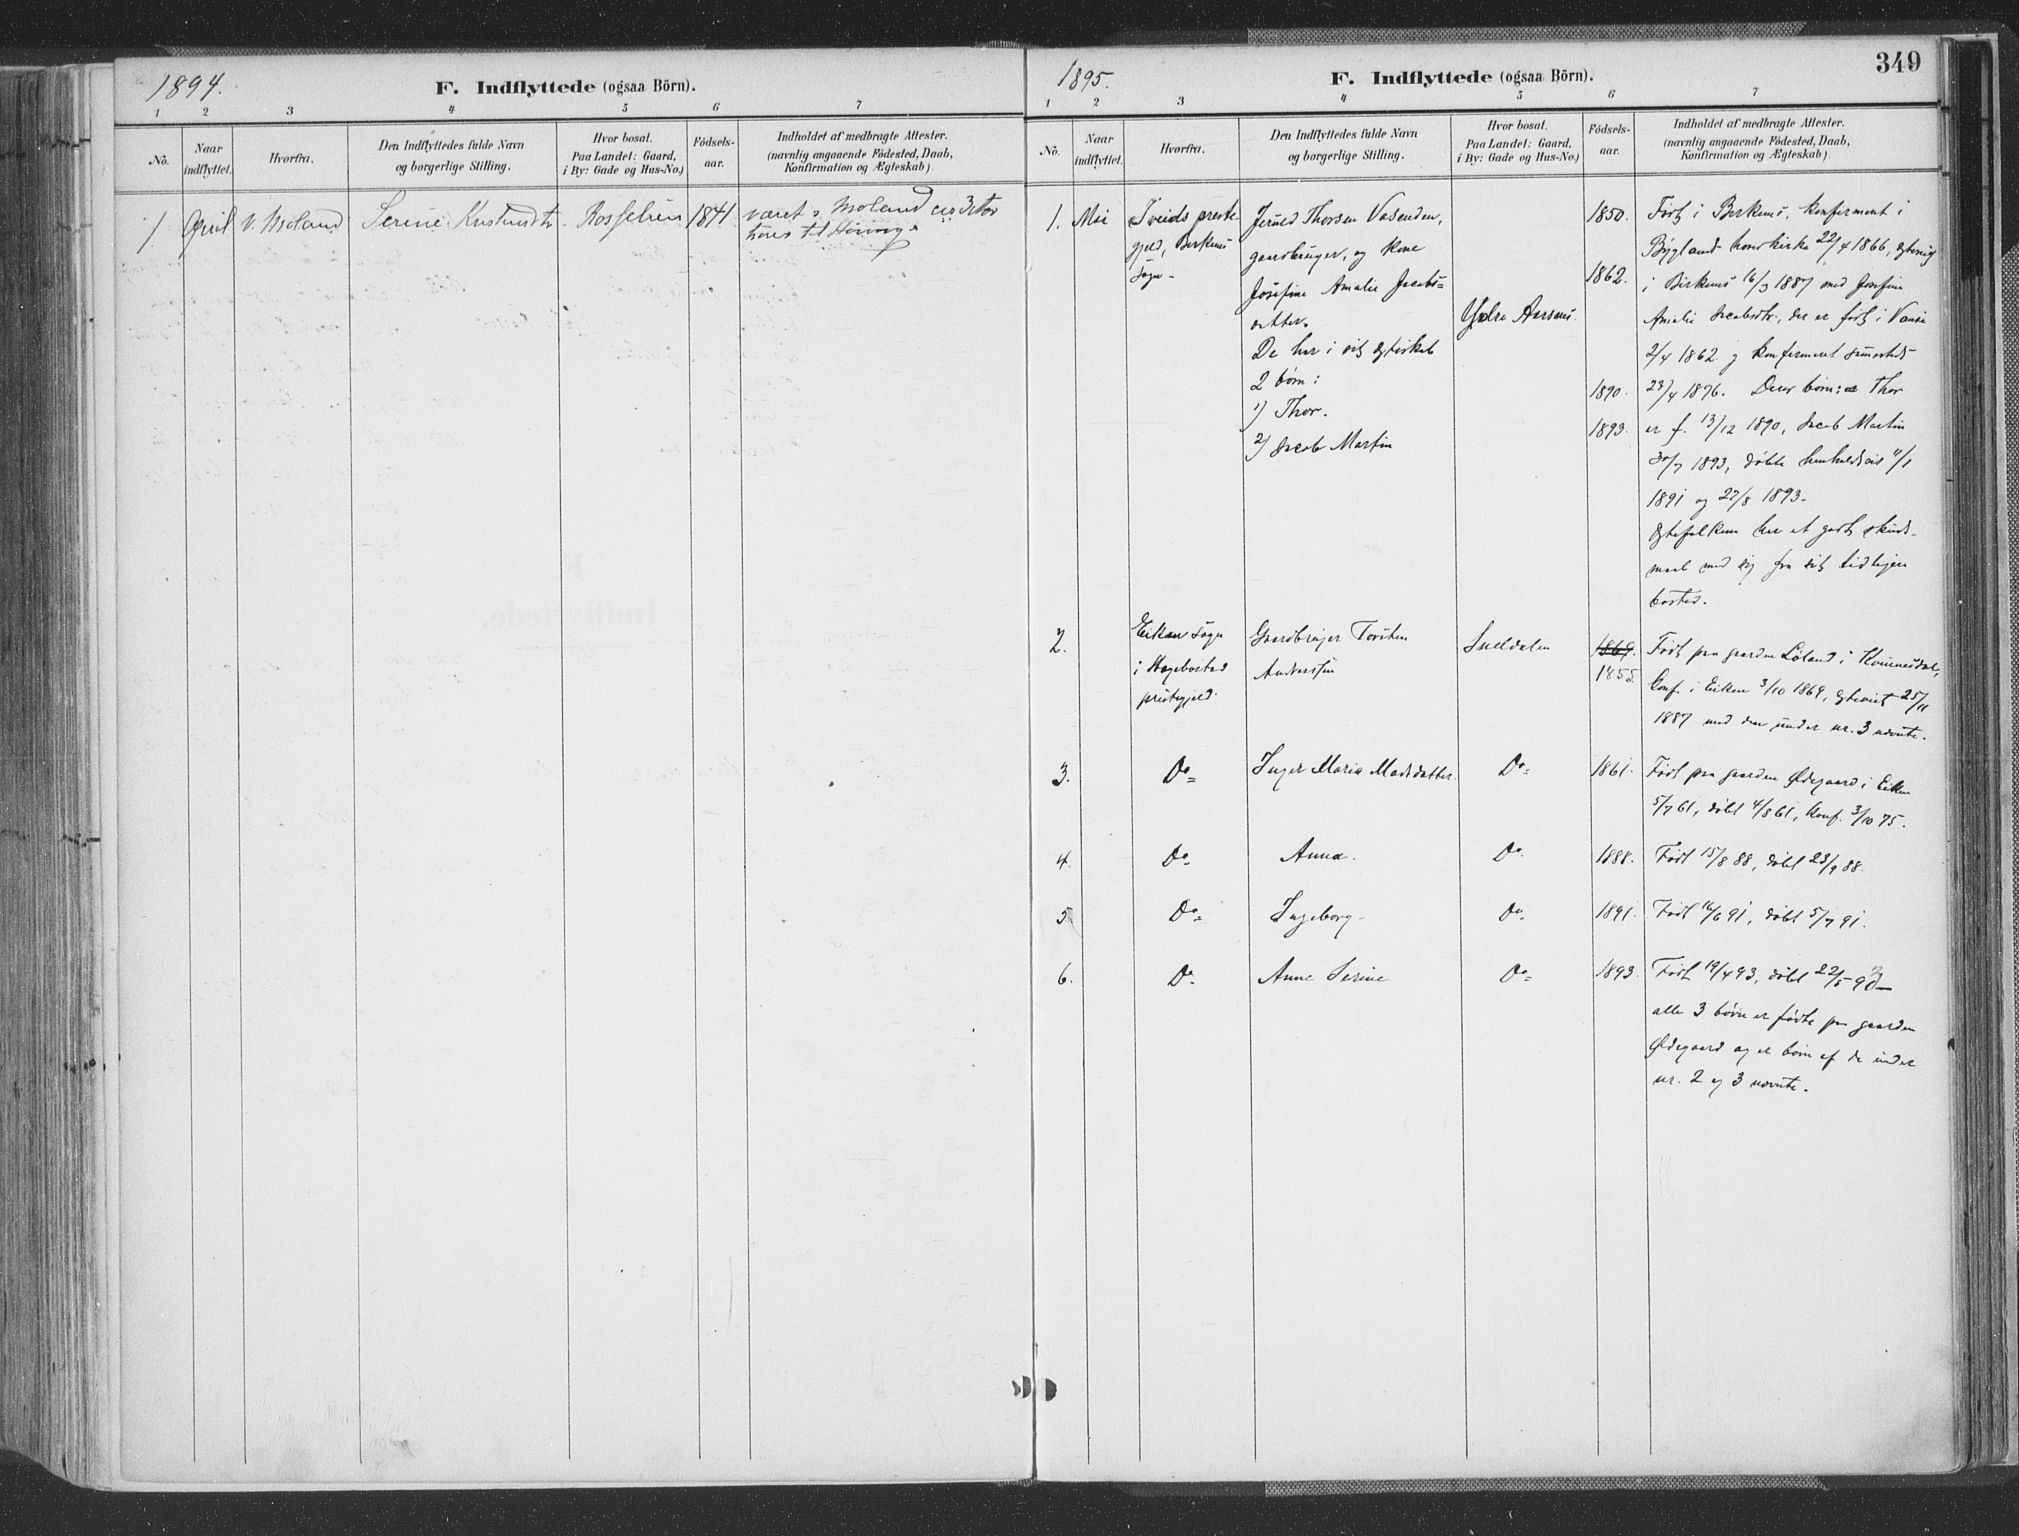 1894.
F. Indflyttede (ogsaa Börn).
1 2 3 4 5 6 7
No.
Naar indflyttet.
Hvorfra.
Den Indflyttedes fulde Navn og borgerlige Stilling.
Hvor bosat. Paa Landet: Gaard, i By: Gade og Hus-No.)
Födsels-aar.
Indholdet af medbragte Attester. (navnlig angaaende Födested, Daab, Konfirmation og Ægteskab)
1 April V. Moland Serine 1841. været i Moland
1895.
F. Indflyttede (ogsaa Börn).
349
1 2 3 4 5 6 7
No.
Naar indflyttet.
Hvorfra.
Den Indflyttedes fulde Navn og borgerlige Stilling.
Hvor bosat. Paa Landet: Gaard, i By: Gade og Hus-No.)
Födsels-aar.
Indholdet af medbragte Attester. (navnlig angaaende Födested, Daab, Konfirmation og Ægteskab)
1. Mai
Tveids preste
gjeld, Birkenes
Sogn-
Thorsen Vasenden,
gaardbruger, og Kone
Josefine Amalie Jacobs=
datter.
De har i sit egteskab
2 børn:
1) Thor.
2) Jacob Martin
Ydre
1850.
1862.
1890.
1893.
Født i Birkenes, konfirmeret i
Bygland hovedkirke 22/4 1866, egteviet
i Birkenes 16/3 1887 med Josefine
Amalie Jacobsdtr., der er født i Vanse
2/4 1862 og konfirmeret sammesteds
23/4 1876. Deres børn: Thor
er f. 13/12 1890, Jacob Martin
30/7 1893, døbte henholdsvis 11/1
1891 og 27/8 1893.
Egtefolkene har et godt skuds-
maal med sig fra sit tidligere
bosted.
2.
Eiken Sogn
i Hægebostad
prestegjeld.
Gaardbruger Torsten
Andreassen
1869.
1855.
Født paa gaarden Løland i Kvinnesdal,
Conf. i Eiken 3/10 1869, egteviet 25/11
1887 med den under nr. 3 nævnte.
3. Do= Inger Marie Madsdatter. Do= 1861. Født paa gaarden Ødegaard i Eiken
5/7 61, døbt 4/8 61, konf. 3/10 75.
4. Do= Anna. Do. 1888. Født 15/8 88, døbt 23/9 88.
5 Do= Ingeborg- Do. 1891. Født 16/6 91, døbt 5/7 91.
6. Do. Anne Serine Do= 1893. Født 19/4 93, døbt 22/5 93-
alle 3 børn er fødte paa gaarden
Ødegaard og er børn af de under
nr. 2 og 3 nævnte.